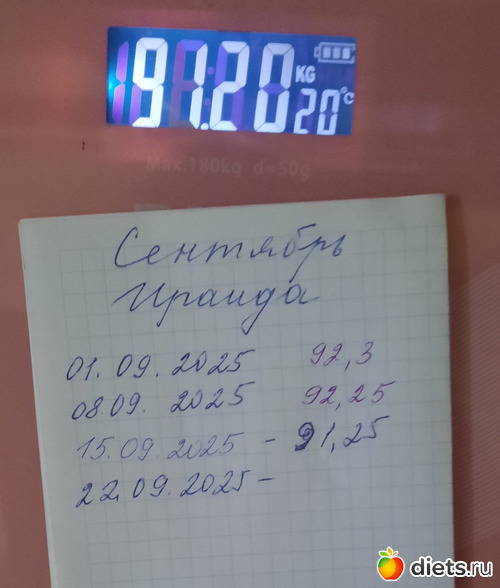 91.20 KG
20°C
Max.180kg d=50g
Сентябрь
Ираида
01.09.2025 92,3
08.09. 2025 92,25
15.09.2025 - 91,25
22.09.2025 -
diets.ru